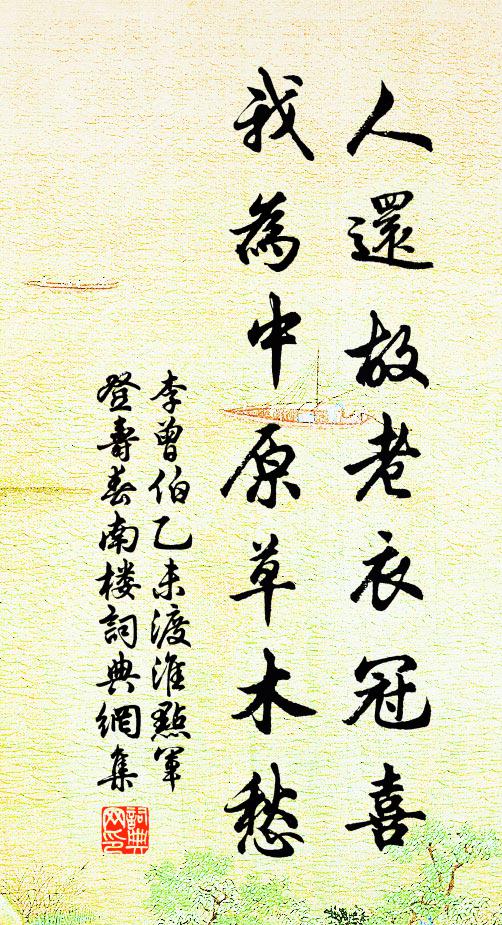 人還故老衣冠喜
我為中原草木愁
李曾伯乙未渡淮點軍
登壽春南楼詞典網集
詞典网印